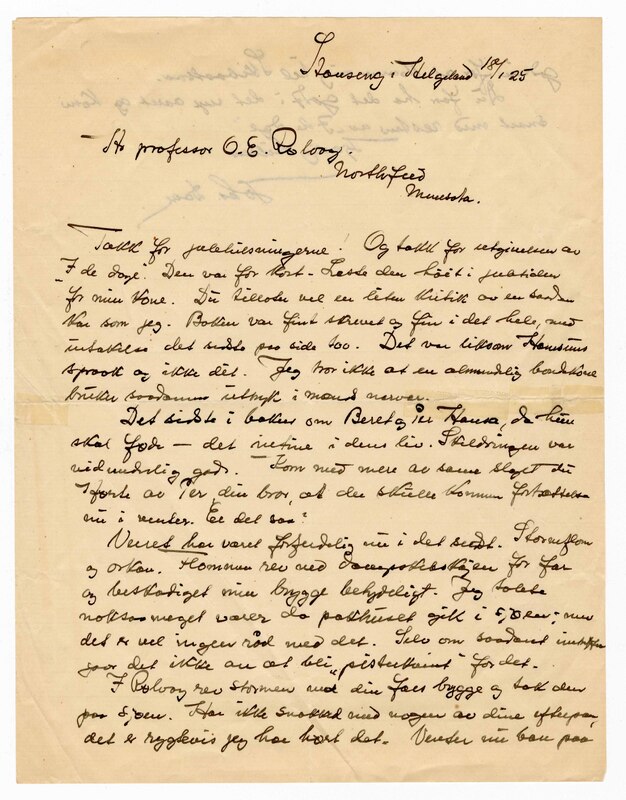 Stamseng i Helgeland 18/1 25
Hr professor O. E. Rolvaag.
Northfield
Minnesota.
Takk for julehilsningerne! Og takk for utgivelsen av
"I de dage". Den var for kort. Læste den høit i juletiden
for min kone. Du tillater vel en liten kritik av en saadan
kar som jeg. Boken var fint skrevet og fin i det hele, med
undtakelse det sidste paa side 200. Det var liksom Hamsuns
spraak og ikke det. Jeg tror ikke at en almindelig bondekone
bruker saadanne uttryk i mands nærvær.
Det sidste i boken om Beret og Per Hansa, da hun
skal føde — det intime i deres liv. Skildringen var
vidunderlig god. Kom med mere av samme slaget du
Hørte av Per din bror, at der skulle komme fortsættelse
nu i vinter. Er det saa?
Veiret har været forferdelig nu i det sidste. Stormflom
og orkan. Flommen rev ned dampskibskaien for far
og beskadiget min brygge betydeligt. Jeg tapte
noksaa meget varer da pakhuset gik i sjøen; men
det er vel ingen råd med det. Selv om saadant inntreffer
gaar det ikke an at bli "pisterkeint" for det.
I Rølvaag rev stormen ned din fars brygge og tok den
paa sjøen. Har ikke snakket med nogen av dine
det er rygtevis jeg har hørt det. Venter nu bare paa